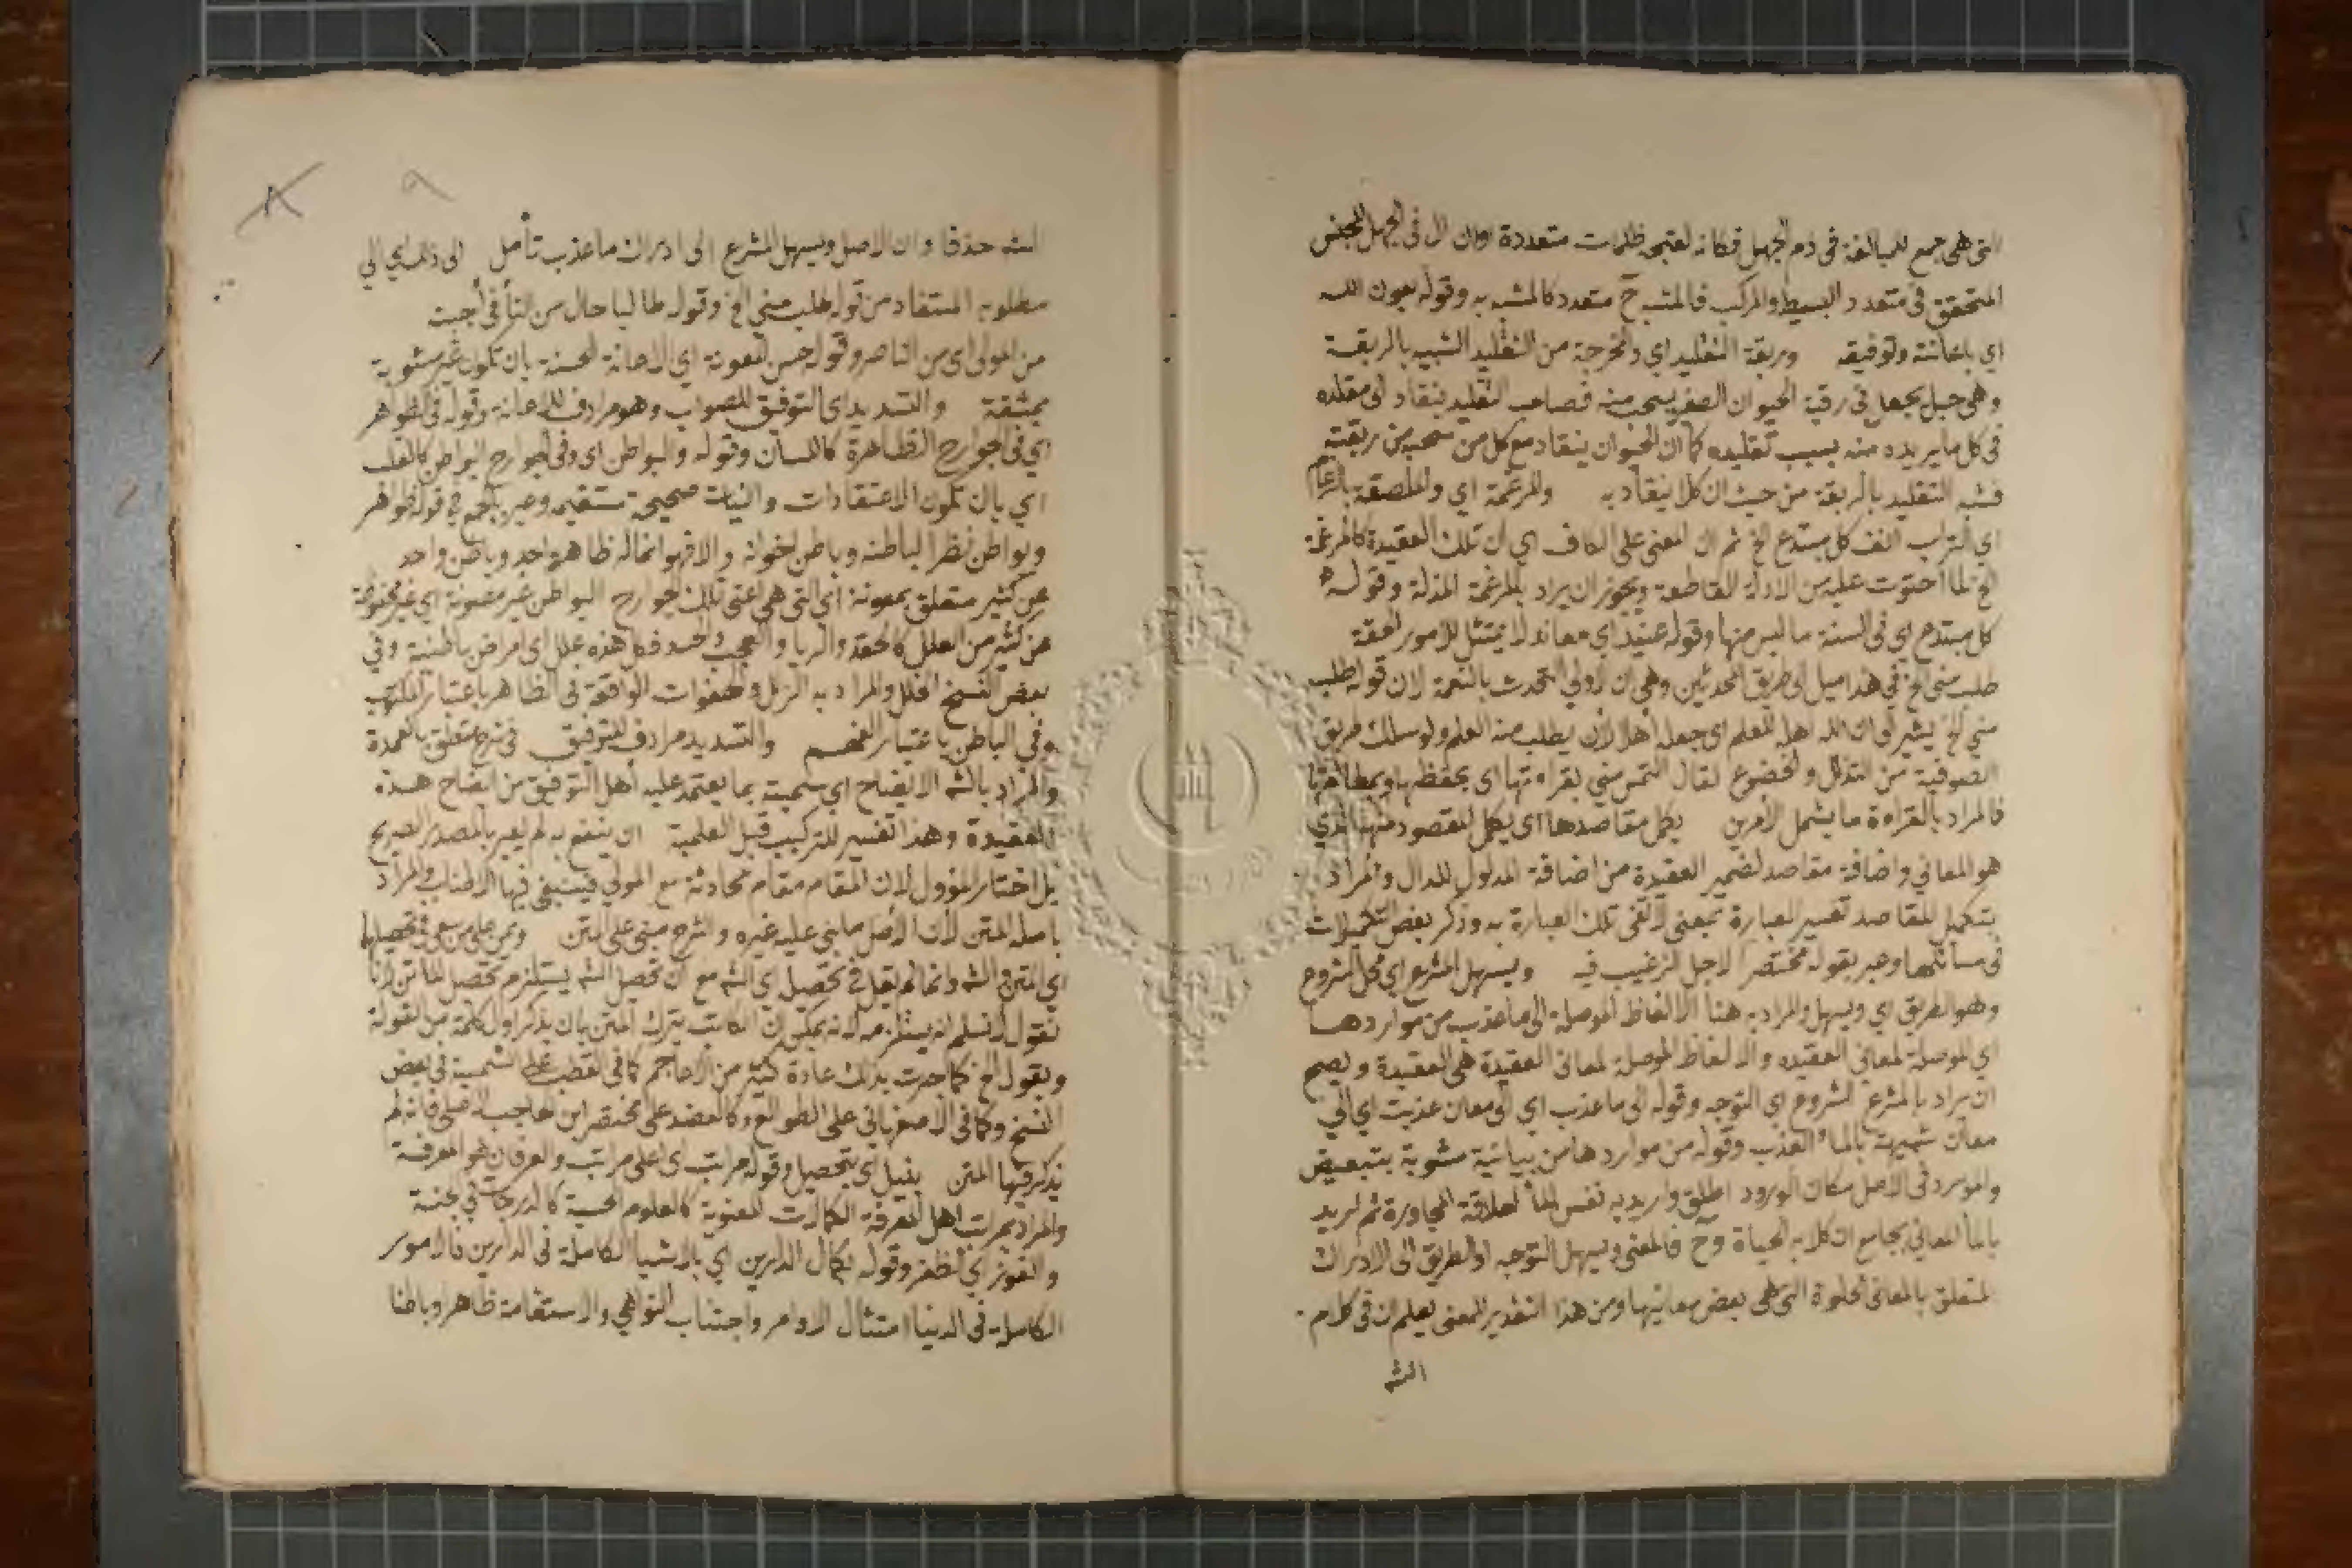 التى هى جمع للمبالغة فى ذم الجهل فكانه لقبحه ظلمات متعددة اوان ال فى الجهل للجنس
المتحقق فى متعدد البسيط والمركب فالمشبه ح متعدد كالمشبه به وقوله بعون الله
اي باعانته وتوفيقه وربقة التقليد اي والمخرجة من التقليد الشبيه بالربقة
وهى حبل يجعل فى رقبة الحيوان الصغير يسحب منه فصاحب التقليد ينقاد الى مقلده
فى كل ما يريده منه بسبب تقليده كما ان الحيوان ينقاد مع كل من سحبه من ربقته
فشبه التقليد بالربقة من حيث ان كلا ينقاد به والمرغمة اي والملصقة بالرغام
اي التراب انف كل مبتدع الخ ثم ان المعنى على الكاف اي ان تلك العقيدة كالمرغمة
الخ لما احتوت عليه من الادلة القاطعة ويجوز ان يراد بالمرغمة المذلة وقوله
كل مبتدع اي فى السنة ما ليس منها وقوله عنيد اي معاند لا يمتثل للامور الحقة
طلب منى الخ فى هذا ميل الى طريق المحدثين وهى ان الاولى التحدث بالنعمة لان قوله طلب
منى الخ يشير الى ان الله اهله للعلم اى جعله اهلا لان يطلب منه العلم ولو سلك طريق
الصوفية من التذلل والخضوع لقال التمس منى بقراءتها اى بحفظها وبمطالعتها
فالمراد بالقراءة ما يشمل الامرين يكمل مقاصدها اى يكمل المقصود منها الذي
هو المعاني واضافة مقاصد لضمير العقيدة من اضافة المدلول للدال والمراد
بتكميل المقاصد تفسير العبارة بمعنى لائق تلك العبارة به وذكر بعض التكميلات
فى مسائلها وعبر بقوله مختصر الاجل الترغيب فيه ويسهل المشرع اي محل الشروع
وهو الطريق اي ويسهل والمراد به هنا الالفاظ الموصلة الى ما عذب من مواردها
اي الموصلة لمعاني العقيده والالفاظ الموصلة لمعانى العقيدة هى العقيدة ويصح
ان يراد بالمشرع الشروع اي التوجه وقوله الى ما عذب اى الى معان عذبت اي الي
معان شبيهة بالماء العذب وقوله من مواردها من بيانية مشوبة بتبعيض
والمورد فى الاصل مكان الورود اطلق واريد به نفس الماء لعلاقة المجاورة ثم اريد
بالماء المعاني بجامع ان كلا به الحياة وح فالمعنى ويسهل التوجه او الطريق الى الادراك
المتعلق بالمعانى الحلوة التى هى بعض معانيها ومن هذا التقدير للمعنى يعلم ان فى كلام
الشه
الشه حذفا وان الاصل ويسهل المشرع الى ادراك ما عذب تأمل الى ذلك اي الي
مطلوبه المستفاد من قوله طلب منى الخ وقوله طالبا حال من التأ فى أجبت
من المولى اى من الناصر وقوله حسن المعونة اي الاعانة الحسنة بان تكون غير مشوبة
بمشقة والتسديد اى التوفيق للصواب وهو مرادف للاعانة وقوله فى الظواهر
اي فى الجوارح الظاهرة كاللسان وقوله والبواطن اى وفى الجوارح البواطن كالقلب
اي بان تكون الاعتقادات والنيات صحيحة مستقيمة وعبر بالجمع فى قوله ظواهر
وبواطن نظرا لباطنه وباطن اخوانه والا فهو انما له ظاهر واحد وباطن واحد
عن كثير متعلق بمصونة اى التى هى اعنى تلك الجوارح البواطن غير مصونة اي غير محفوظة
عن كثير من العلل كالحقد والريا والعجب والحسد فكل هذه علل اى امراض باطنية وفي
بعض النسخ الخلل والمراد به الزلل والهفوات الواقعة فى الظاهر باعتبار
وفي الباطن باعتبار والتسديد مرادف للتوفيق فى شرح متعلق بالعمدة
والمراد بالشه الايضاح اي سميته بما يعتمد عليه اهل التوفيق من ايضاح هذه
العقيدة وهذا تفسير للتركيب قبل العلمية ان ينفع به لم يعبر بالمصدر الصريح
بل اختار المؤول لان المقام مقام محادثة مع المولى فينبغى فيها الاطناب والمراد
باصله المتن لان الاصل ما بني عليه غيره والشرح مبنى على المتن ويمن على من سعى فى تحصيلها
اي المتن والشه وانما لم يقل فى تحصيله اي الشه مع ان تحصيل الشه يستلزم تحصيل الماتن لانا
نقول لا نسلم انه يستلزمه لانه يمكن ان الكاتب يترك المتن بان يذكر اول كلمة من القولة
ويقول الخ كما جرت بذلك عادة كثير من الاعاجم كما فى القطب على الشمسية فى بعض
النسخ وكما فى الاصفهانى على الطوالع وكالعضد على مختصر ابن الحاجب الاصلى فانه لم
يذكر فيها المتن بنيل اى بتحصيل وقوله مراتب اى اعلى مراتب والعرفان هو المعرفة
والمراد بمراتب اهل المعرفة الكمالات المعنوية كالعلوم الحسية كالدرجات فى الجنة
والفوز اي الظفر وقوله بكمال الدارين اي بالاشيا الكاملة فى الدارين فالامور
الكاملة فى الدنيا امتثال الاوامر واجتناب النواهي والاستقامة ظاهرا وباطنا